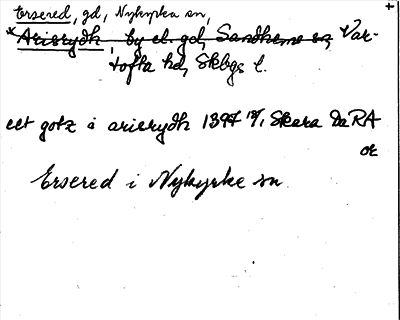 Ersered, gd, Nykyrka sn,
*Arisrydh, by el. gd, Sandhems sn, Var-
tofta hd, Skbgs l.
eet gotz i arisrydh 1397 Skara DaRA
or
Ersered i Nykyrke sn